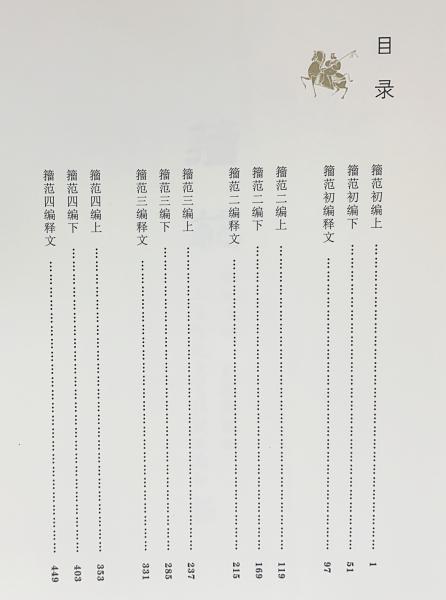 目录
籀范初编上 1
籀范初编下 51
籀范初编释文 97
籀范二编上 119
籀范二编下 169
籀范二编释文 215
籀范三编上 237
籀范三编下 285
籀范三编释文 331
籀范四编上 353
籀范四编下 403
籀范四编释文 449